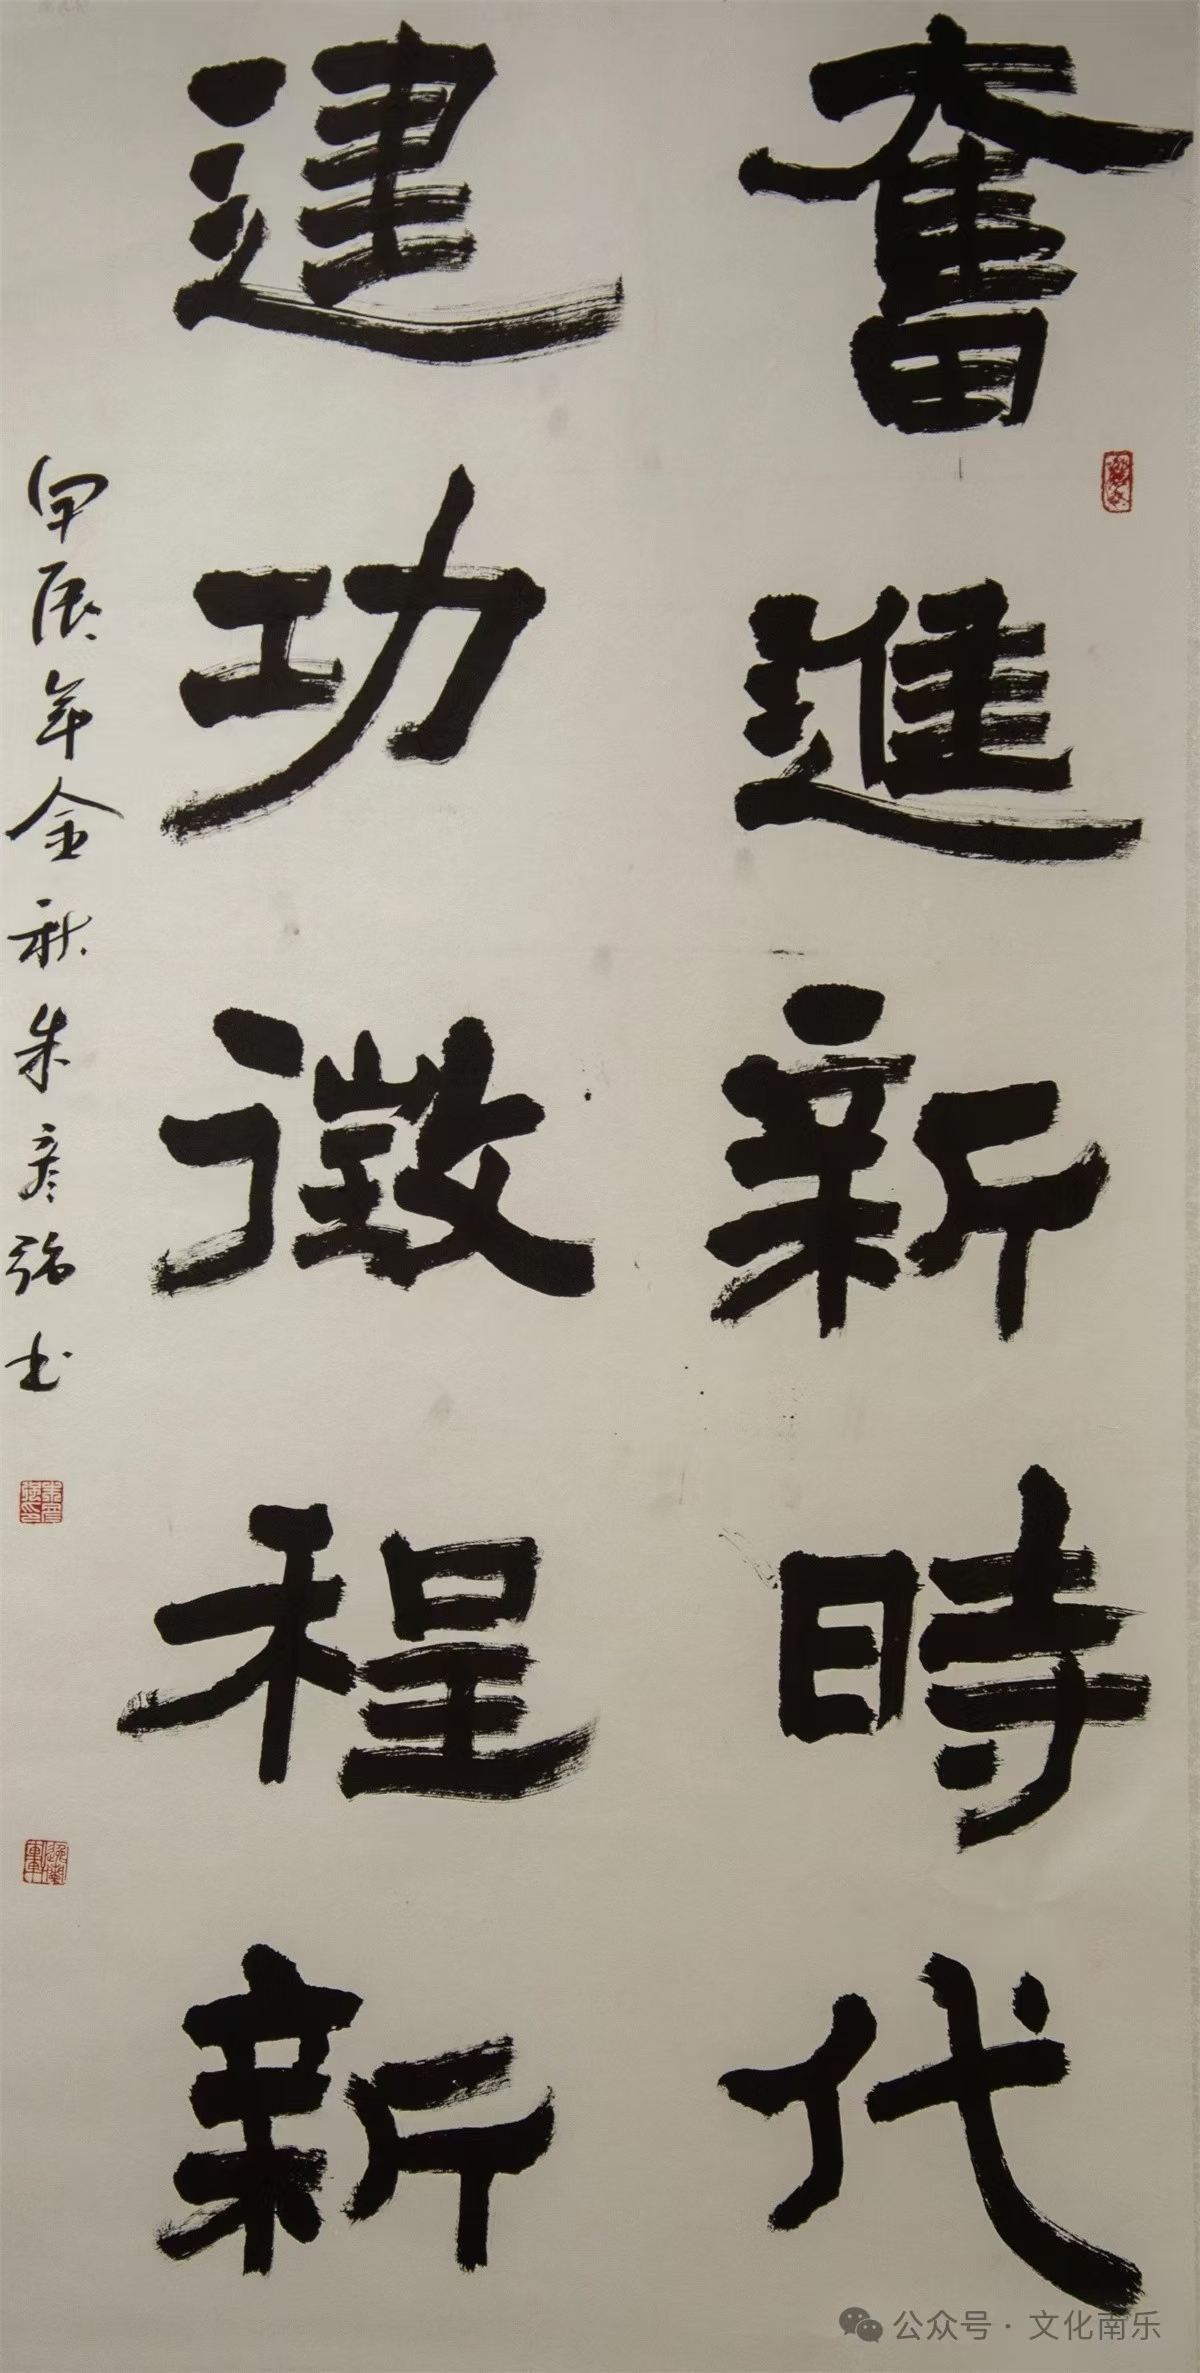 奮進新時代
建功徵程新
甲辰年金秋朱彦强书
公众号·文化南乐